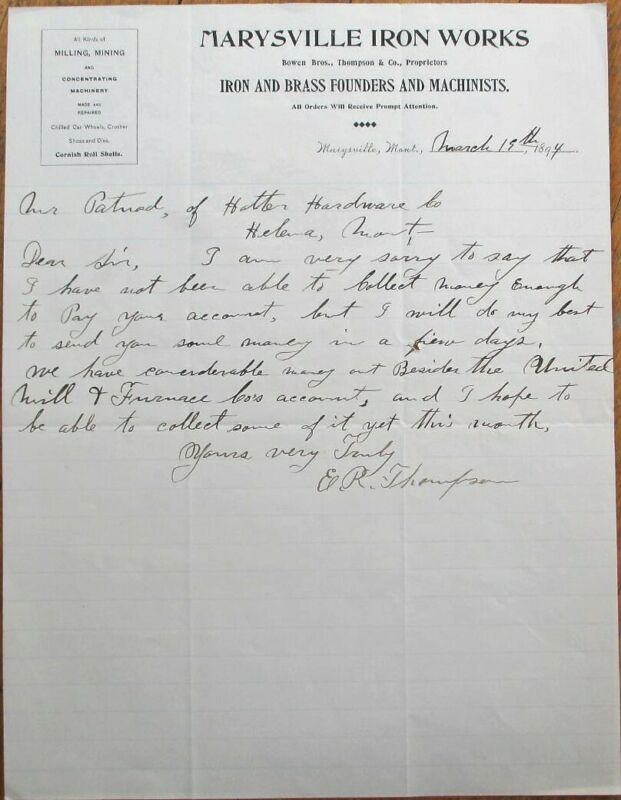 All Kinds of
MILLING, MINING
AND
CONCENTRATING
MACHINERY
MADE AND
REPAIRED
Chilled Car Wheels, Crusher
Shoes and Dies.
Cornish Roll Shells.
MARYSVILLE IRON WORKS
Bowen Bros., Thompson & Co., Proprietors
IRON AND BRASS FOUNDERS AND MACHINISTS.
All Orders Will Receive Prompt Attention.
Marysville, Mont., March 19th 1894
Mr , of Holter Hardware Co
Helena, Mont
Dear Sir, I am very sorry to say that
I have not been able to Collect money Enough
to Pay your account, but I will do my best
to send you some money in a few days.
We have considerable money out Besides the United
Mill & Furnace Co's account, and I hope to
be able to collect some of it yet this month,
Yours very Truly
E R. Thompson